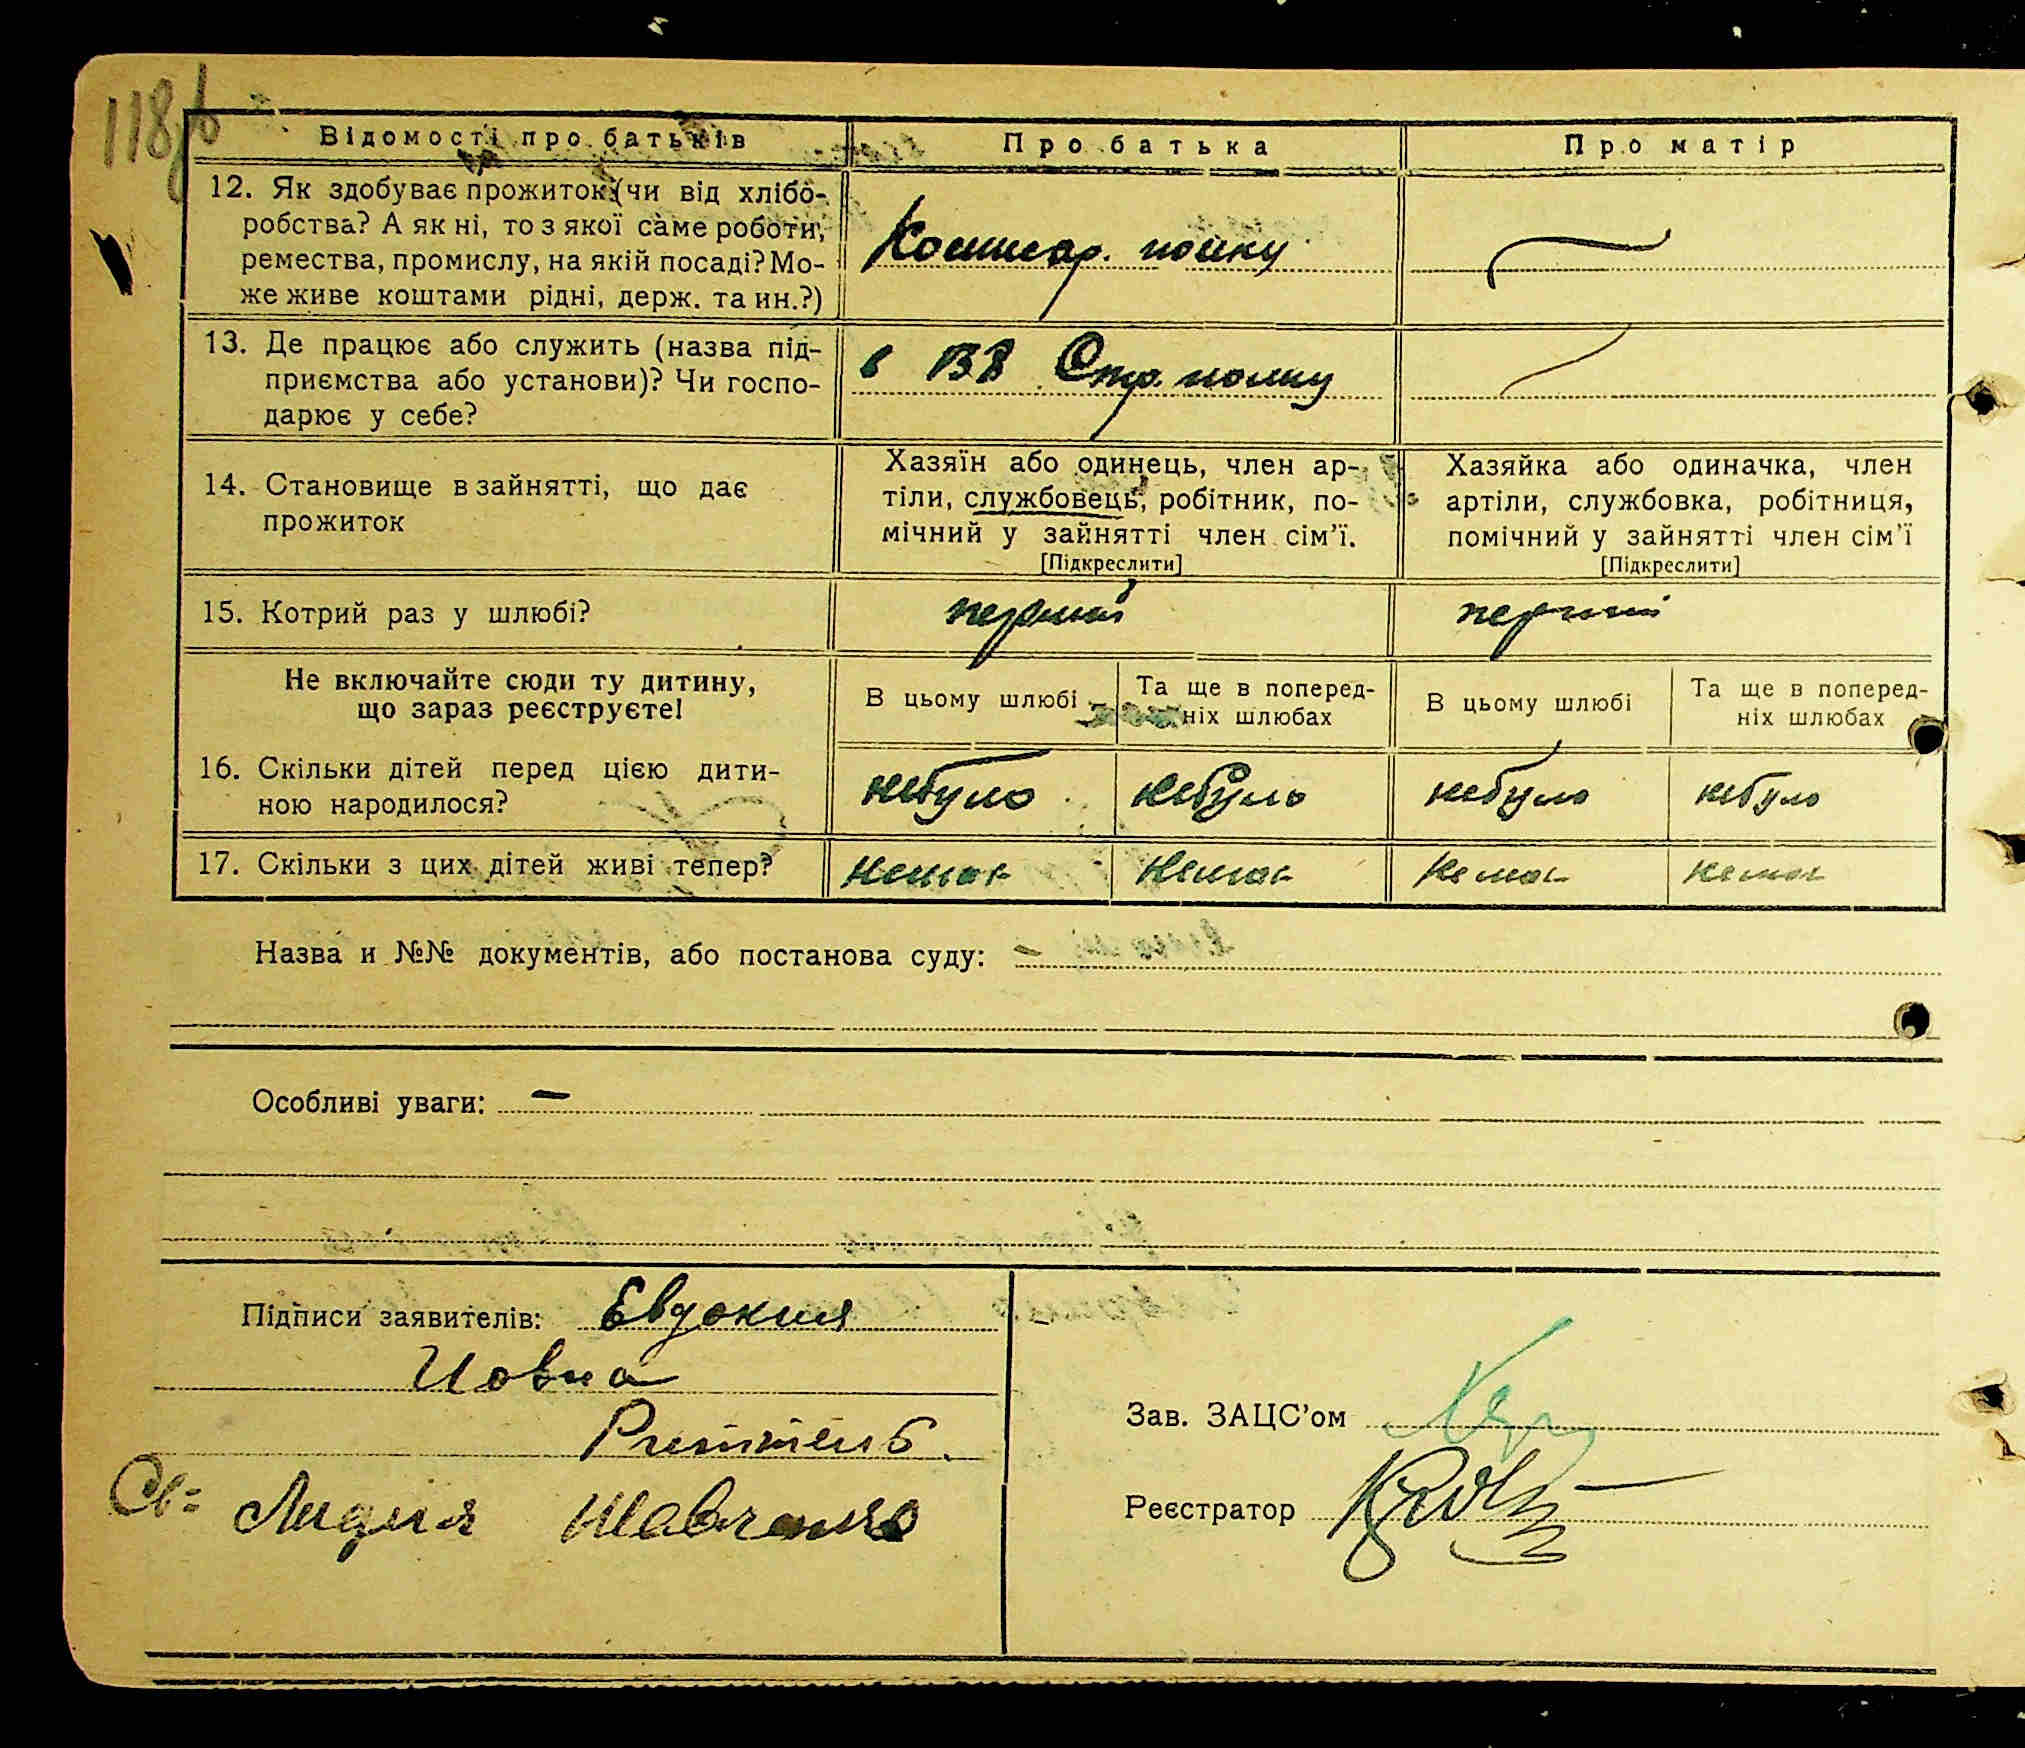 118
Відомості про батьків
Про батька
Про матір
12. Як здобуває прожиток (чи від хлібо-
робства? А як ні, то з якої саме роботи,
ремества, промислу, на якій посаді? Мо-
же живе коштами рідні, держ. та ин.?)
Комисар. полку
13. Де працює або служить (назва під-
приємства або установи)? Чи госпо-
дарює у себе?
в 138 Стр. полку
14. Становище в зайнятті, що дає
прожиток
Хазяїн або одинець, член ар-
тіли, службовець, робітник, по-
мічний у зайнятті член сім'ї.
[Підкреслити]
Хазяйка або одиначка, член
артіли, службовка, робітниця,
помічний у зайнятті член сім'ї
[Підкреслити]
15. Котрий раз у шлюбі?
перший
перший
Не включайте сюди ту дитину,
що зараз реєструєте!
В цьому шлюбі
Та ще в поперед-
ніх шлюбах
В цьому шлюбі
Та ще в поперед-
ніх шлюбах
16. Скільки дітей перед цією дити-
ною народилося?
небуло
небуло
небуло
небуло
17. Скільки з цих дітей живі тепер?
немає
немає
немає
немає
Назва и №№ документів, або постанова суду: –
Особливі уваги: –
Підписи заявителів: Евдокия
Иовна
Св: Лидия Шевченко
Зав. ЗАЦС'ом
Реєстратор